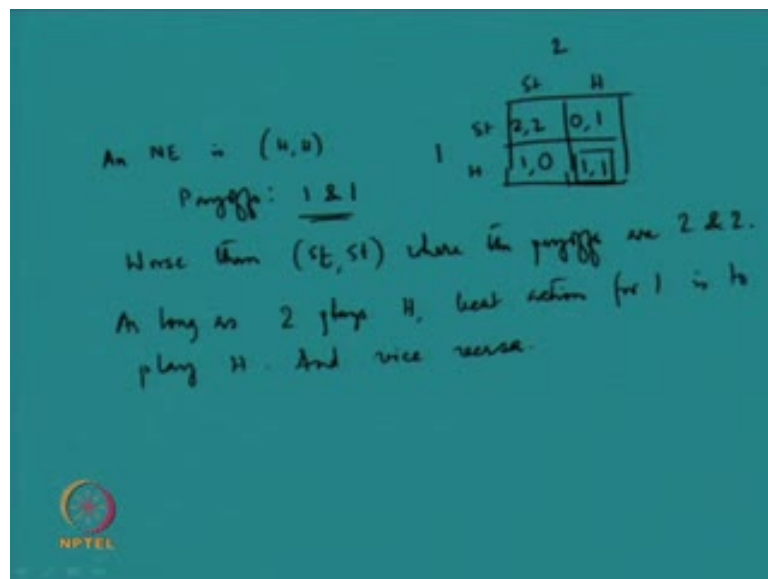 2
St H
St 2,2 0,1
1 H 1,0 1,1
An NE is (H,H)
Payoffs: 1 & 1
Worse than (St, St) where the payoffs are 2 & 2.
As long as 2 plays H, best action for 1 is to
play H. And vice versa.
NPTEL